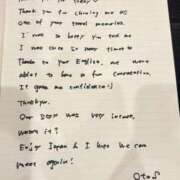 Thank you for today!
Thank you for chosing me as
One of your travel memories.
I was so happy you told me
I was nice so many times
Thanks to your English, we were
able to have a fun conversation.
It gave me confidence:)
Thankyou.
Our was very intense,
wasn't it?
Enjoy Japan & I hope we can
meet again!